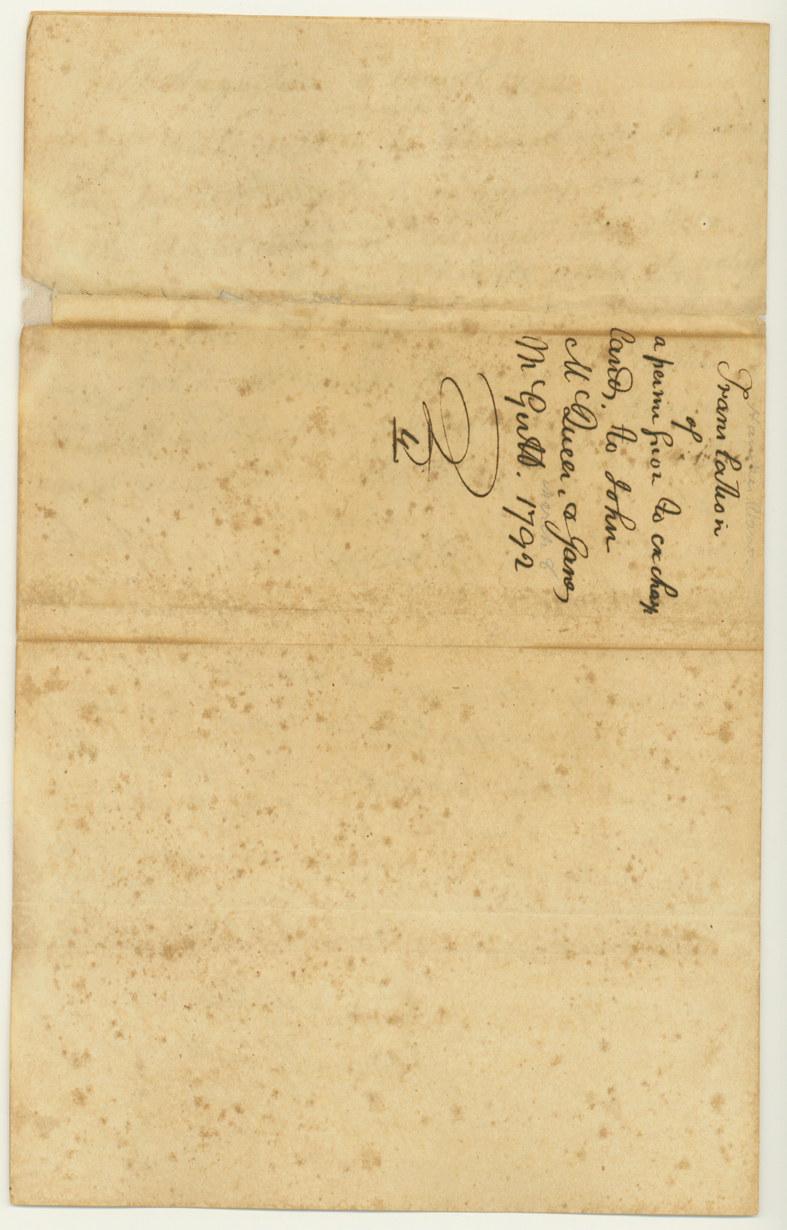 Translation
of
a permission to exchange
land, to John
McQueen, &
McGirtt. 1792